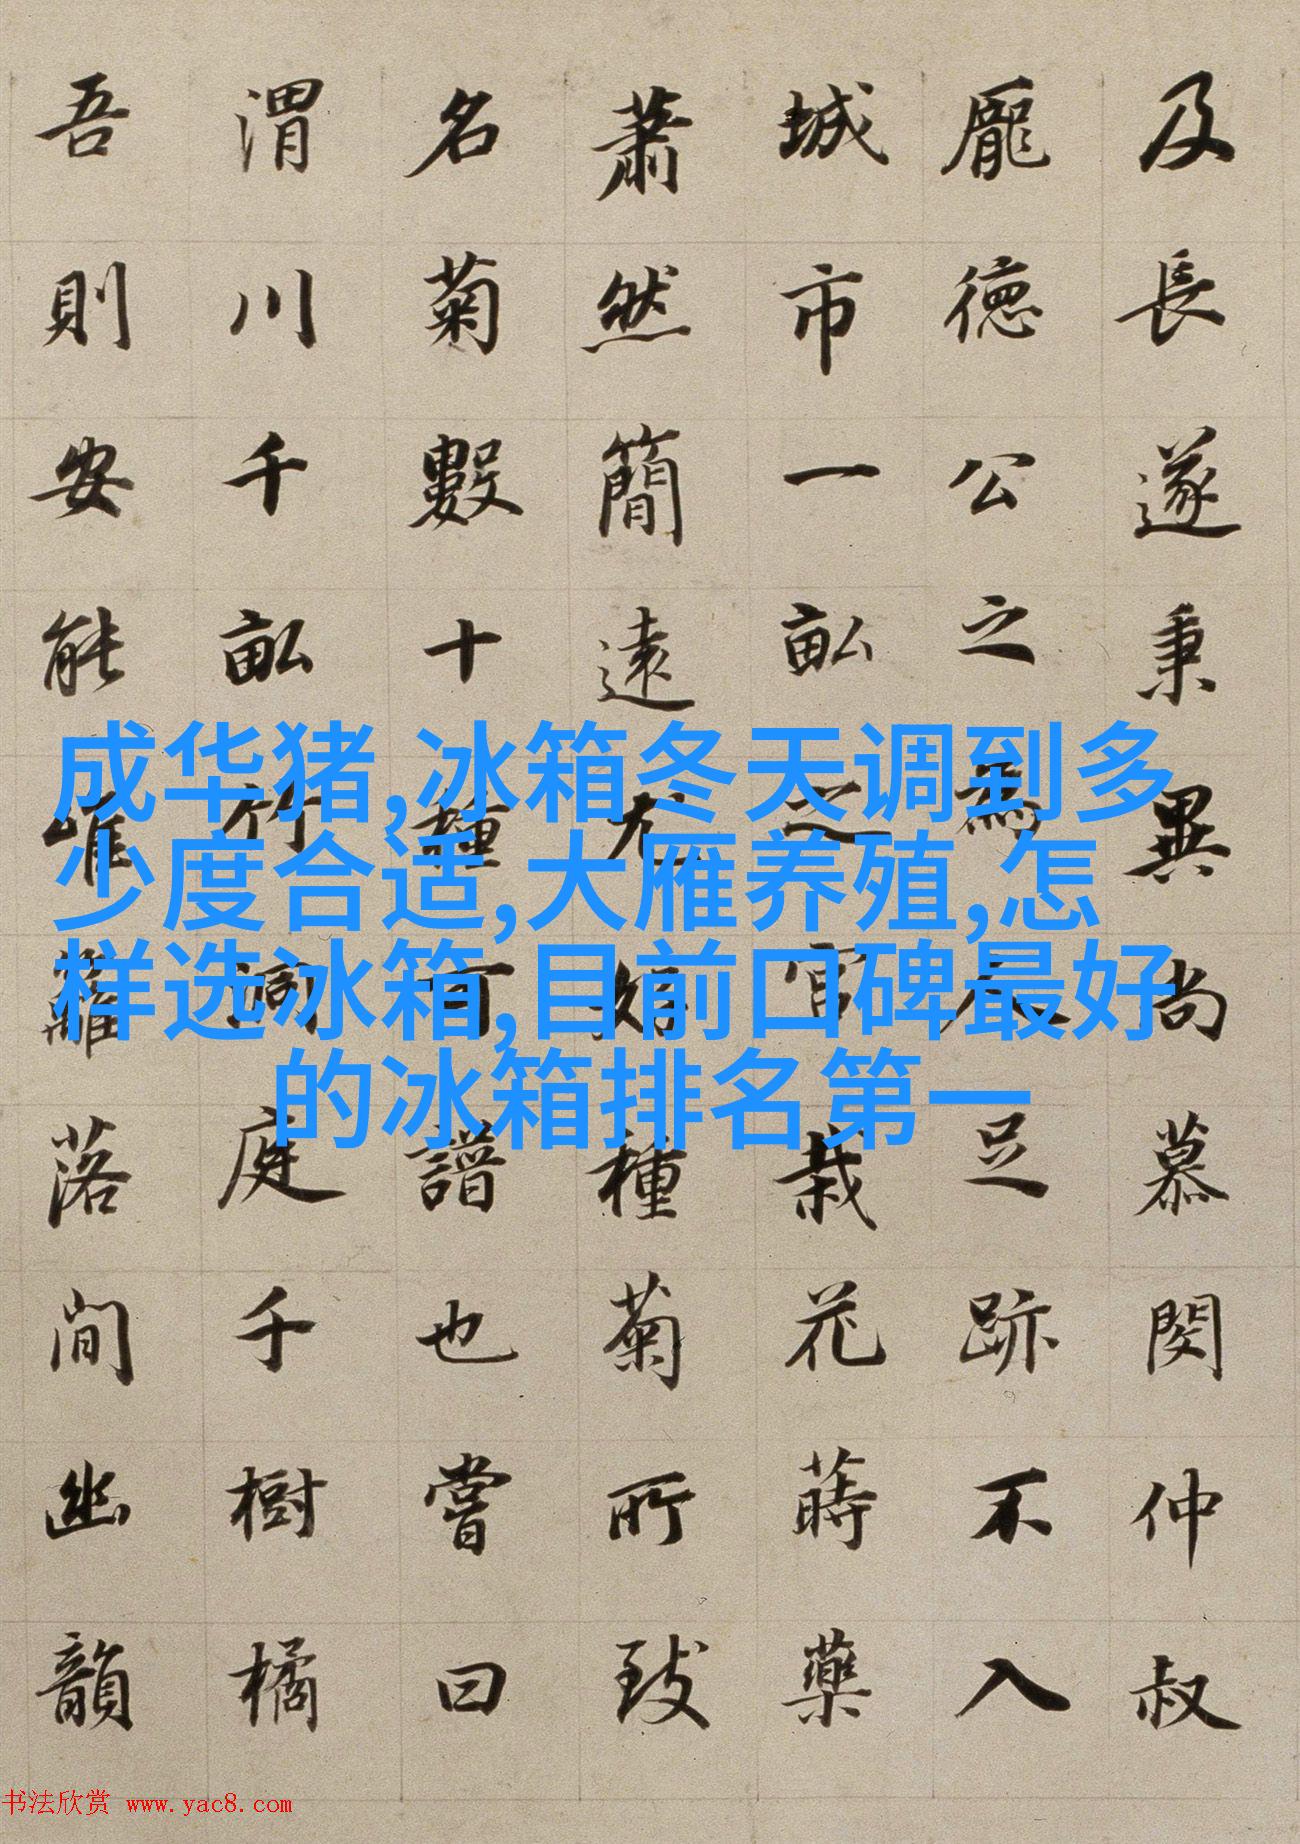 及長遂秉異尚慕閔仲叔
龐德公之為人足跡不入
城市一畝之宮栽花蒔藥
蕭然簡遠尤好種菊所致
名菊數十種可譜也嘗曰
渭川千畝竹洞庭千樹橘
吾則安能唯籬落間幽韻
成华猪,冰箱冬天调到多
少度合适,大雁养殖,怎
样选冰箱,目前口碑最好
的冰箱排名第一
书法欣赏 www.yac8.com